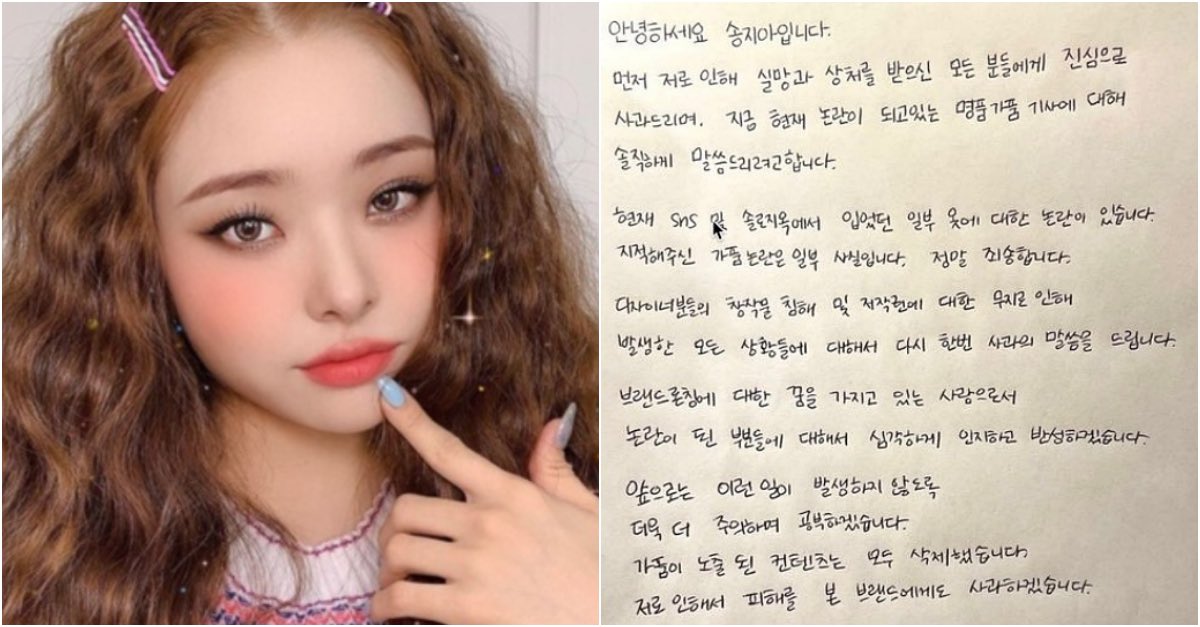 안녕하세요 송지아입니다.
먼저 저로 인해 실망과 상처를 받으신 모든 분들에게 진심으로
사과드리며. 지금 현재 논란이 되고있는 명품가품 기사에 대해
솔직하게 말씀드리려고합니다.
현재 sns 및 솔로지옥에서 입었던 일부 옷에 대한 논란이 있습니다.
지적해주신 가품논란은 일부 사실입니다. 정말 죄송합니다.
디자이너분들의 창작물 침해 및 저작권에 대한 무지로 인해
발생한 모든 상황들에 대해서 다시 한번 사과의 말씀을 드립니다.
브랜드론칭에 대한 꿈을 가지고 있는 사람으로서
논란이 된 부분들에 대해서 심각하게 인지하고 반성하겠습니다.
앞으로는 이런 일이 발생하지 않도록
더욱 더 주의하며 공부하겠습니다.
가품이 노출 된 컨텐츠는 모두 삭제했습니다.
저로인해서 피해를 본 브랜드에게도 사과하겠습니다.